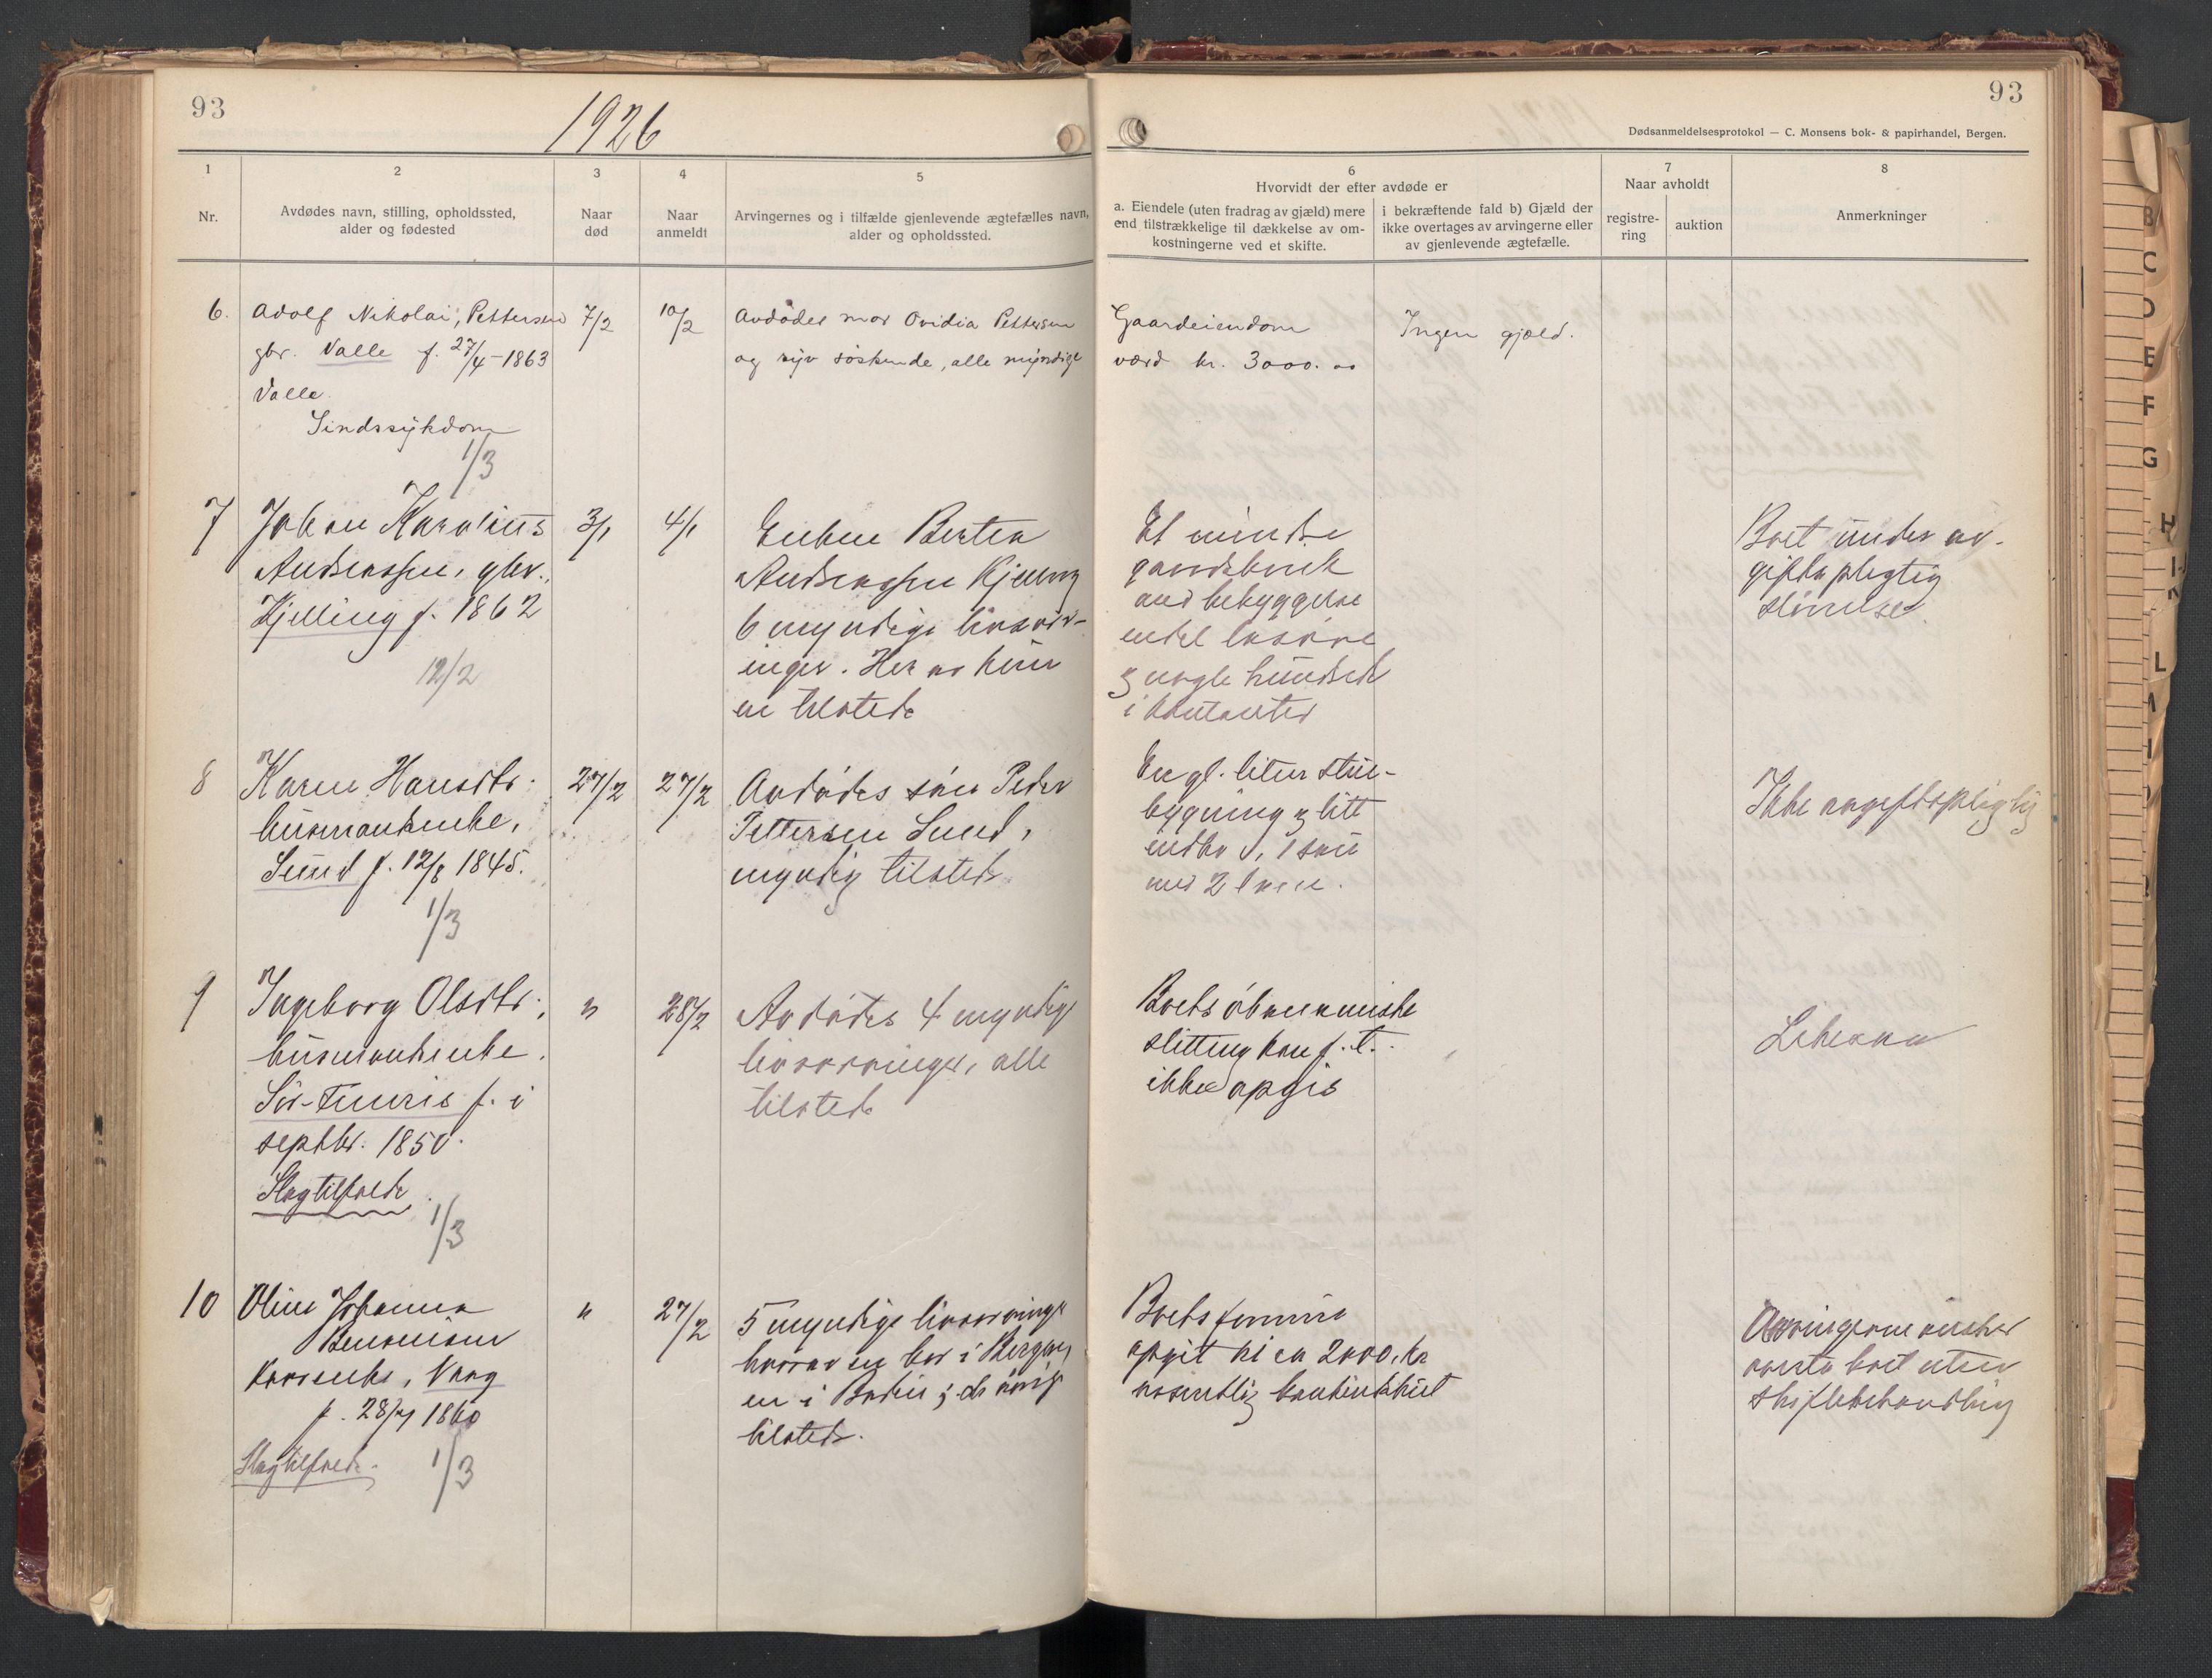 93
1926
1
2
3
4
5
Nr.
Avdødes navn, stilling, opholdssted,
alder og fødested
Naar
død
Naar
anmeldt
Arvingernes og i tilfælde gjenlevende ægtefælles navn,
alder og opholdssted.
6. Adolf Nikolai, Pettersen 7/2 10/2 Avdødes mor Ovidia Pettersen
gbr. Valle f. 27/4-1863 og syv søskende, alle myndige
Valle.
Sindssykdom
1/3
7 Johan Karolius 3/1 4/1 Enken Berten
Anderssen, gbr., Anderssen Kjelling
Kjelling f. 1862 6 myndige livsarv-
12/2 inger. Her av kun
en tilstede
8 Karen Hansdtr. 27/2 27/2 Avdødes søn Peder
husmankenke, Pettersen Sund,
Sund f. 12/8 1845. myndig tilstede
1/3
9 Ingeborg Olsdtr. " 28/2 Avdødes 4 myndige
husmankenke. livsarvinger, alle
Sør-Tuuris f. i tilstede
septbr. 1850.
Slagtilfælde
1/3
10 Oline Johanna " 27/2 5 myndige livsarvinge
Benonisen hvorav en bor i Bergen,
Kaarenke, Vaag en i Bodin; de øvrige
f. 28/7 1860 tilstede.
Slagtilfælde. 1/3
93
Dødsanmeldelsesprotokol — C. Monsens bok- & papirhandel, Bergen.
6
Hvorvidt der efter avdøde er
a. Eiendele (uten fradrag av gjæld) mere
end tilstrækkelige til dækkelse av om-
kostningerne ved et skifte.
i bekræftende fald b) Gjæld der
ikke overtages av arvingerne eller
av gjenlevende ægtefælle.
7
Naar avholdt
registre-
ring
auktion
8
Anmerkninger
Gaardeiendom Ingen gjæld.
værd kr. 3000.00
Et mindre Boet under av-
gaardsbruk giftspligtig
med bebyggelse størrelse.
endel løsøre
og nogle hundrede
i kontanter
En gl. liten stue- Ikke avgiftspligtig
bygning og litt
indbo, 1 sau
med 2 lam.
Boets økonomiske Likesaa
stilling kan f. t.
ikke opgis
Boets formue Arvingerne ønsker
opgit til ca 2000, kr overta boet uten
væsentlig bankinskud skiftebehandling
B
C
D
E
F
G
H
L